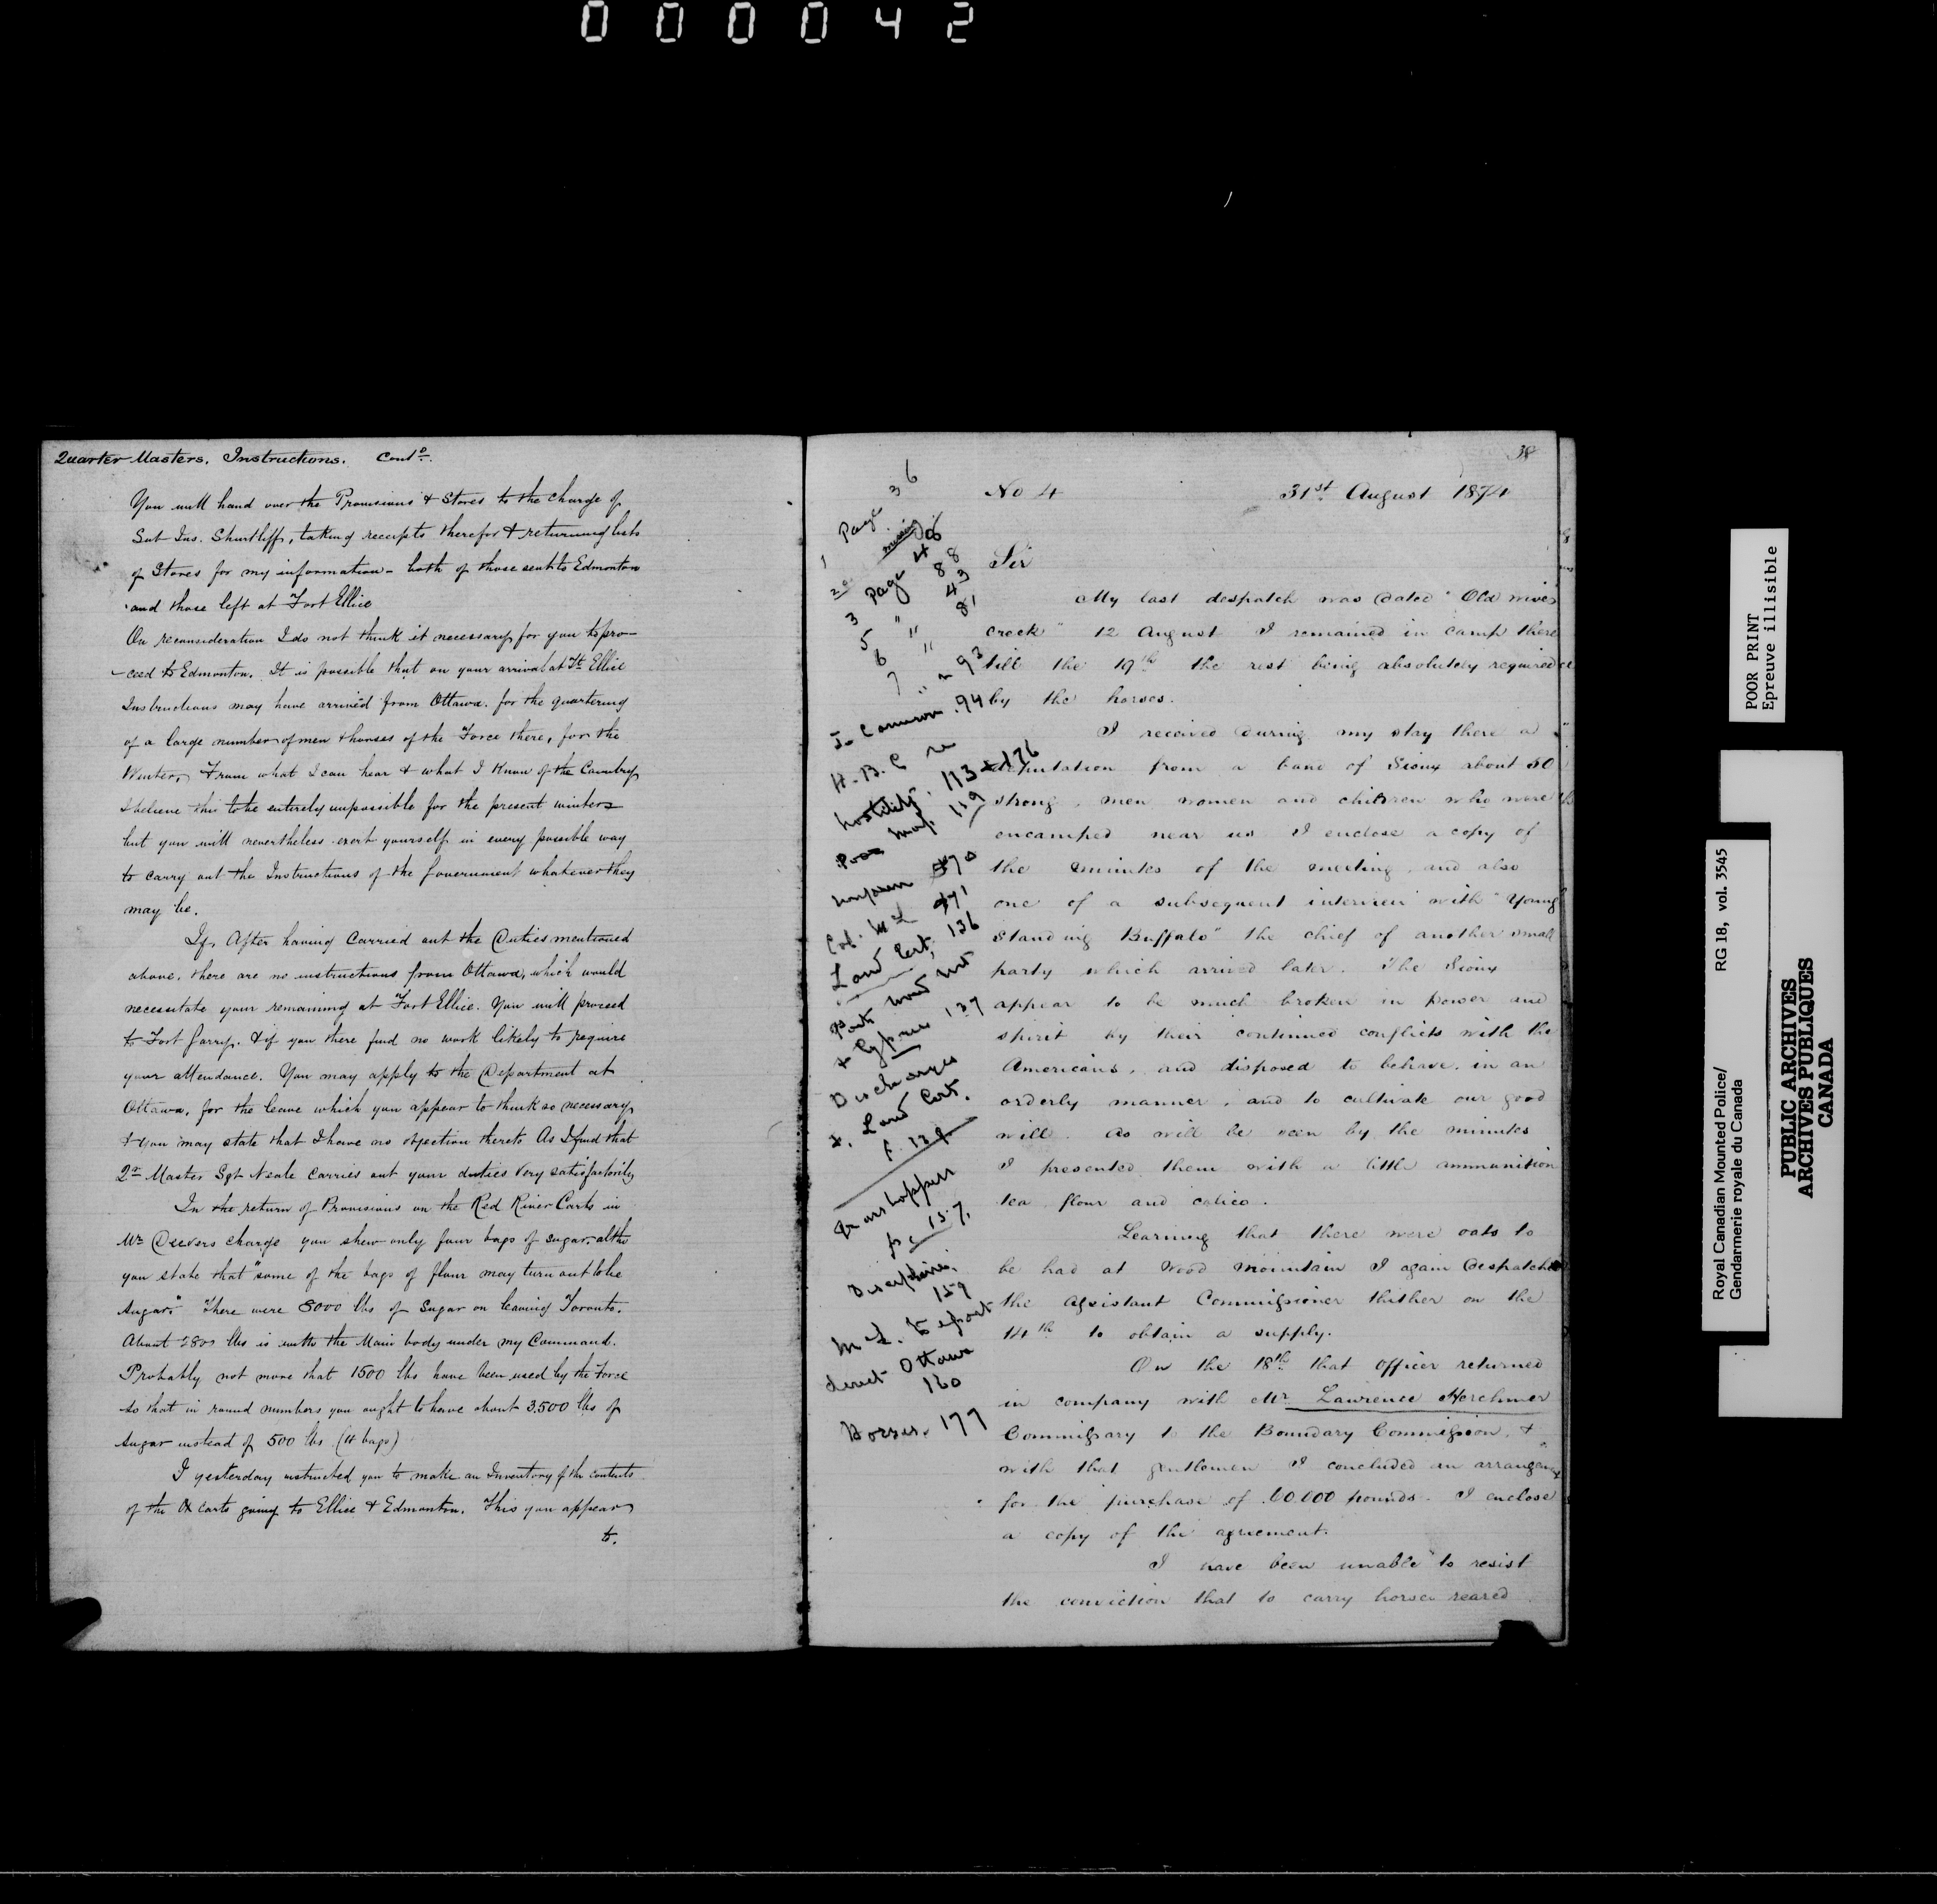 000042
Quarter Masters. Instructions. Contd.
You will hand over the Provisions & Stores to the charge of
Sub Ins. Shurtliff, taking receipts therefor & returning lists
of Stores for my information - both of those sent to Edmonton
and those left at Fort Ellice
On reconsideration I do not think it necessary for you to pro-
-ceed to Edmonton. It is possible that on your arrival at Ft. Ellice
Instructions may have arrived from Ottawa. for the quartering
of a large number of men & horses of the Force there, for the
Winter, From what I can hear & what I know of the Country
I believe this to be entirely impossible for the present winter
but you will nevertheless exert yourself in every possible way
to carry out the Instructions of the Government whatever they
may be.
If, After having Carried out the Duties mentioned
above, there are no instructions from Ottawa, which would
necessitate your remaining at Fort Ellice. You will proceed
to Fort Garry. & if you there find no work likely to require
your attendance. You may apply to the Department at
Ottawa, for the leave which you appear to think so necessary
& you may state that I have no objection thereto As I find that
Qr Master Sgt Neale carries out your duties very satisfactorily
In the return of Provisions on the Red River Carts in
Mr Deevers charge you shew only four bags of sugar, altho
you state that "some of the bags of flour may turn out to be
sugar." There were 8000 lbs of Sugar on leaving Toronto.
About 2800 lbs is with the Main body under my Command.
Probably not more that 1500 lbs have been used by the Force
so that in round numbers you ought to have about 3,500 lbs of
sugar instead of 500 lbs (4 bags)
I yesterday instructed you to make an Inventory of the contents
of the Ox carts going to Ellice & Edmonton. This you appear
to.
38
No 4 31st August 1874
Sir
My last despatch was dated "Old wives
creek" 12 August I remained in camp there
till the 19th the rest being absolutely required
by the horses.
I received during my stay there a
deputation from a band of Sioux about 50
strong, men women and children who were
encamped near us I enclose a copy of
the minutes of the meeting, and also
one of a subsequent interview with "Young
Standing Buffalo" the chief of another small
party which arrived later. The Sioux
appear to be much broken in power and
spirit by their continued conflicts with the
Americans, and disposed to behave in an
orderly manner, and to cultivate our good
will. As will be seen by the minutes
I presented them with a little ammunition
tea flour and calico.
Learning that there were oats to
be had at Wood Mountain I again Despatched
the Assistant Commissioner thither on the
14th to obtain a supply.
On the 18th that officer returned
in company with Mr Lawrence Herchmer
Commissary to the Boundary Commission, &
with that gentleman I concluded an
for the purchase of 60.000 pounds. I enclose
a copy of the agreement.
I have been unable to resist
the conviction that to carry horses reared
1 Page 36
2 missing
3 Page 48
5 " 88
6 " 43
7 " 81
" 93
Cameron 94
H.B.C
hostility. 113 & 176
map 119
Land Cert. 136
& Cypress 137
Discharges
& Land Cert.
Grasshoppers
p. 157.
Discipline.
159
McL. to report
direct Ottawa
160
Horses. 177
POOR PRINT
Epreuve illisible
Royal Canadian Mounted Police/ RG 18, vol. 3545
Gendarmerie royale du Canada
PUBLIC ARCHIVES
ARCHIVES PUBLIQUES
CANADA